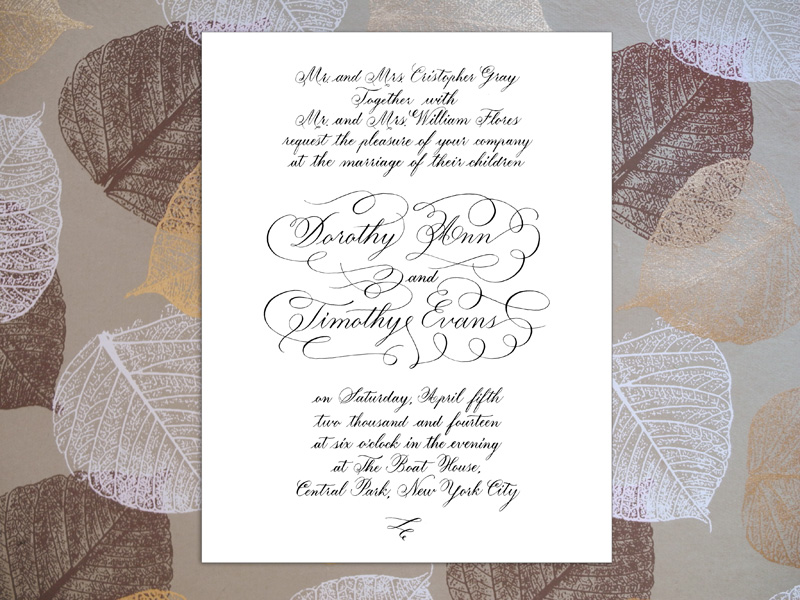 Mr. and Mrs. Cristopher Gray
Together with
Mr. and Mrs. William Flores
request the pleasure of your company
at the marriage of their children
Dorothy Ann
and
Timothy Evans
on Saturday, April fifth
two thousand and fourteen
at six o'clock in the evening
at The Boat House,
Central Park, New York City